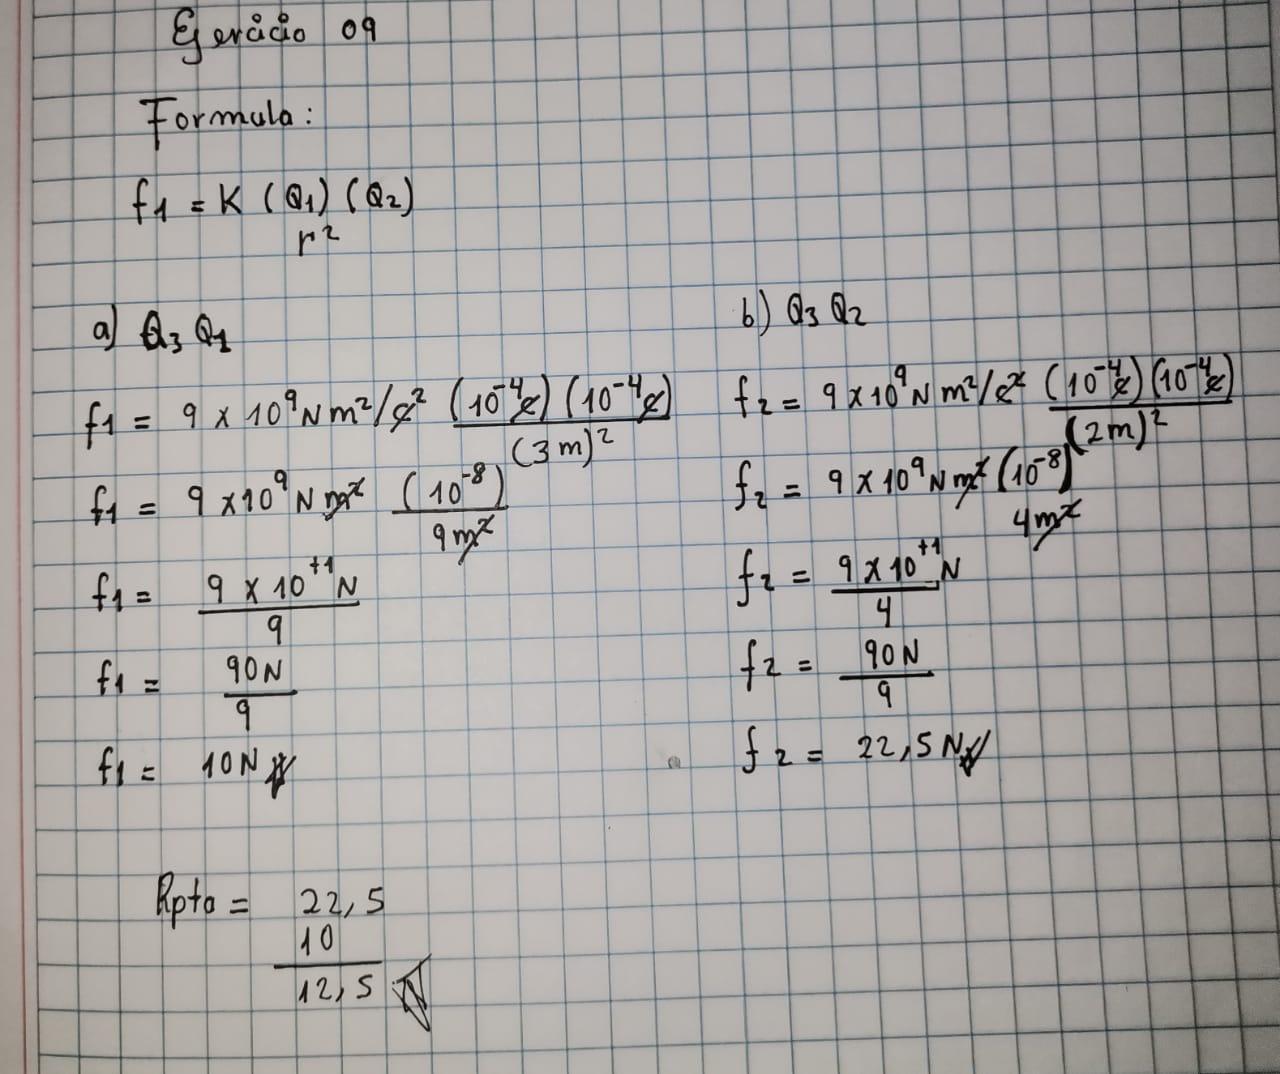 Ejercicio 09
Formula:
f1 = K (Q1) (Q2)
r²
a) Q3 Q1
f1 = 9 x 10⁹ N m²/c² (10⁻⁴c) (10⁻⁴c)
(3m)²
f1 = 9 x 10⁹ N m² (10⁻⁸)
9m²
f1 = 9 x 10⁺¹ N
9
f1 = 90N
9
f1 = 10N
b) Q3 Q2
f2 = 9 x 10⁹ N m²/c² (10⁻⁴c) (10⁻⁴c)
(2m)²
f2 = 9 x 10⁹ N m² (10⁻⁸)
4m²
f2 = 9 x 10⁺¹ N
4
f2 = 90N
9
f2 = 22,5 N
Rpta = 22,5
10
12,5 N